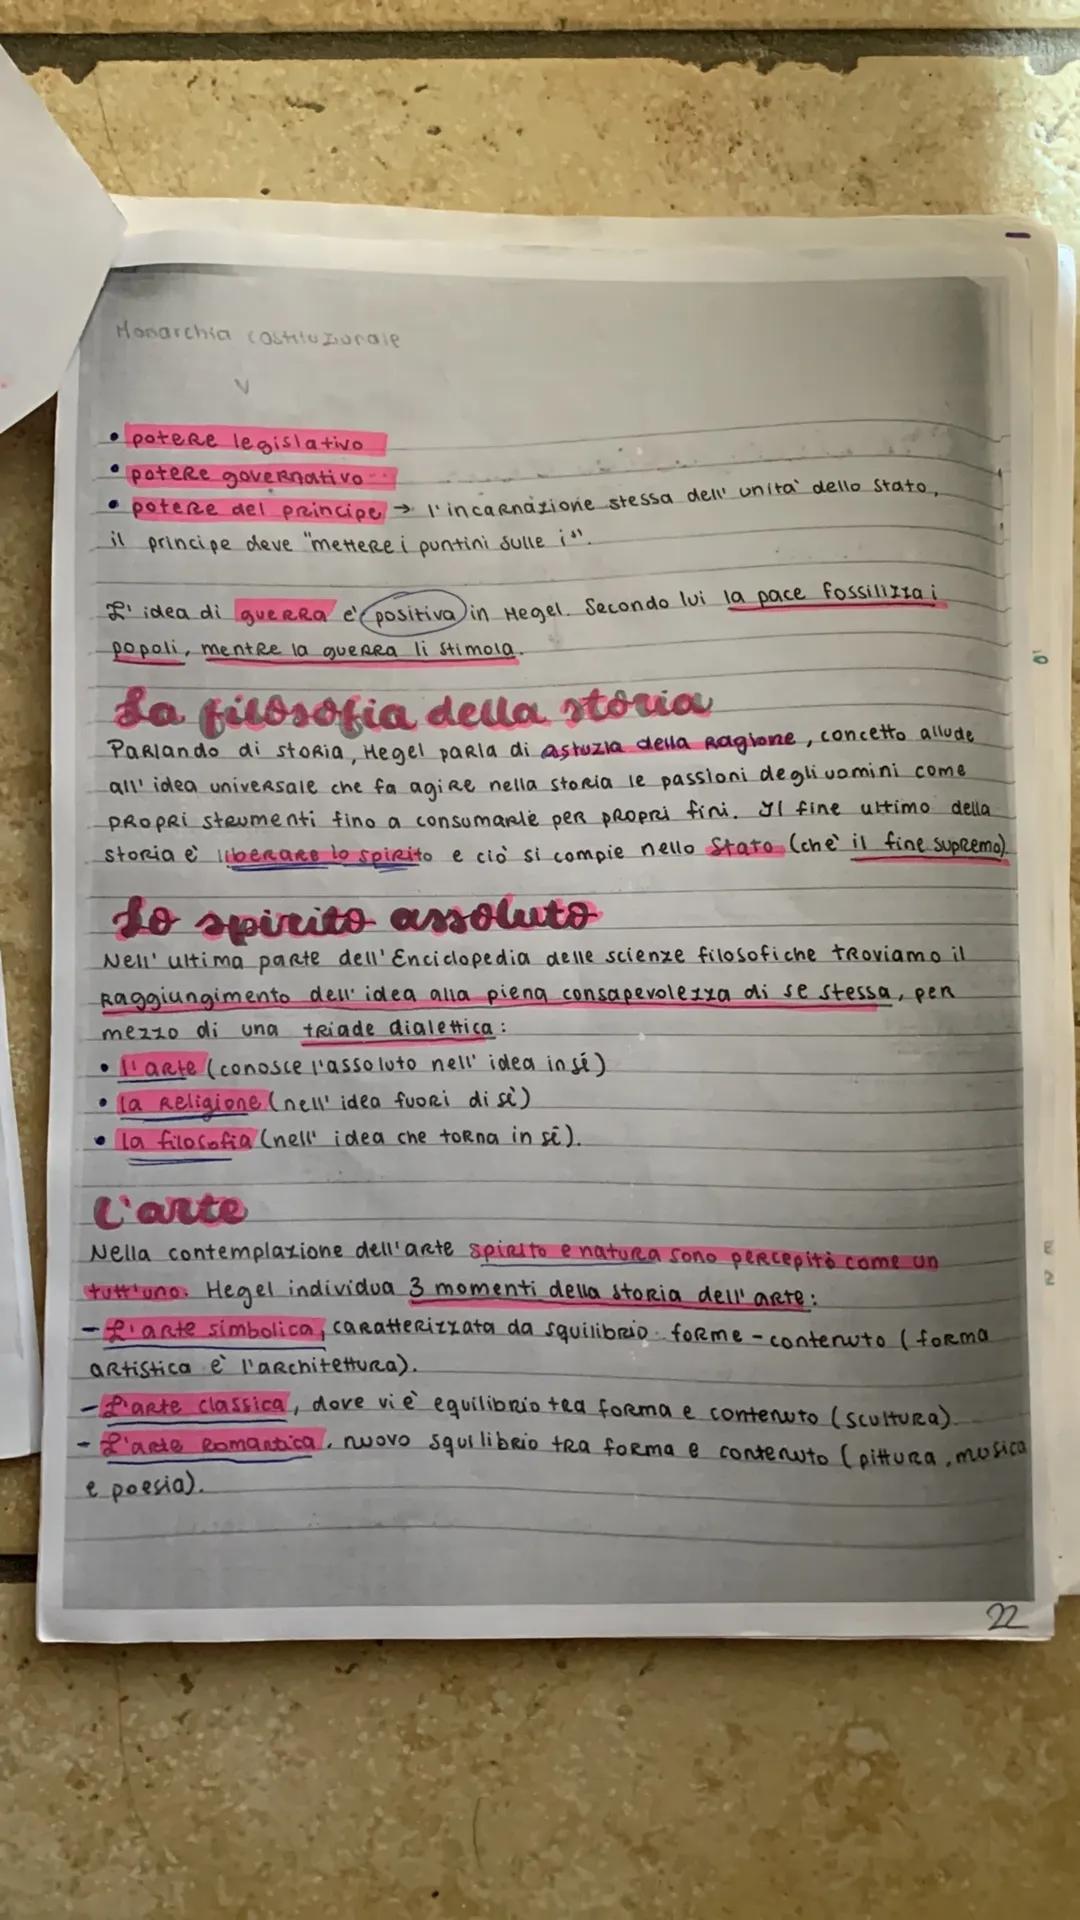 Monarchia costituzionale
v
• potere legislativo
• potere governativo
• potere del principe → l'incarnazione stessa dell'unità dello Stato,
il principe deve "mettere i puntini sulle i".
L'idea di guerra e' positiva in Hegel. Secondo lui la pace fossilizza i
popoli, mentre la guerra li stimola.
La filosofia della storia
Parlando di storia, Hegel parla di astuzia della ragione, concetto allude
all'idea universale che fa agire nella storia le passioni degli uomini come
propri strumenti fino a consumarle per propri fini. Il fine ultimo della
storia è liberare lo spirito e ciò si compie nello Stato (chè il fine supremo)
Lo spirito assoluto
Nell'ultima parte dell'Enciclopedia delle scienze filosofiche troviamo il
raggiungimento dell'idea alla piena consapevolezza di se stessa, per
mezzo di una triade dialettica:
• l'arte (conosce l'assoluto nell'idea in sé)
• la religione (nell'idea fuori di sé)
• la filosofia (nell'idea che torna in sé).
L'arte
Nella contemplazione dell'arte spirito e natura sono percepito come un
tutt'uno. Hegel individua 3 momenti della storia dell'arte:
- L'arte simbolica, caratterizzata da squilibrio forme - contenuto (forma
artistica è l'architettura).
- L'arte classica, dove vi è equilibrio tra forma e contenuto (scultura).
- L'arte romantica, nuovo squilibrio tra forma e contenuto (pittura, musica
e poesia).
22